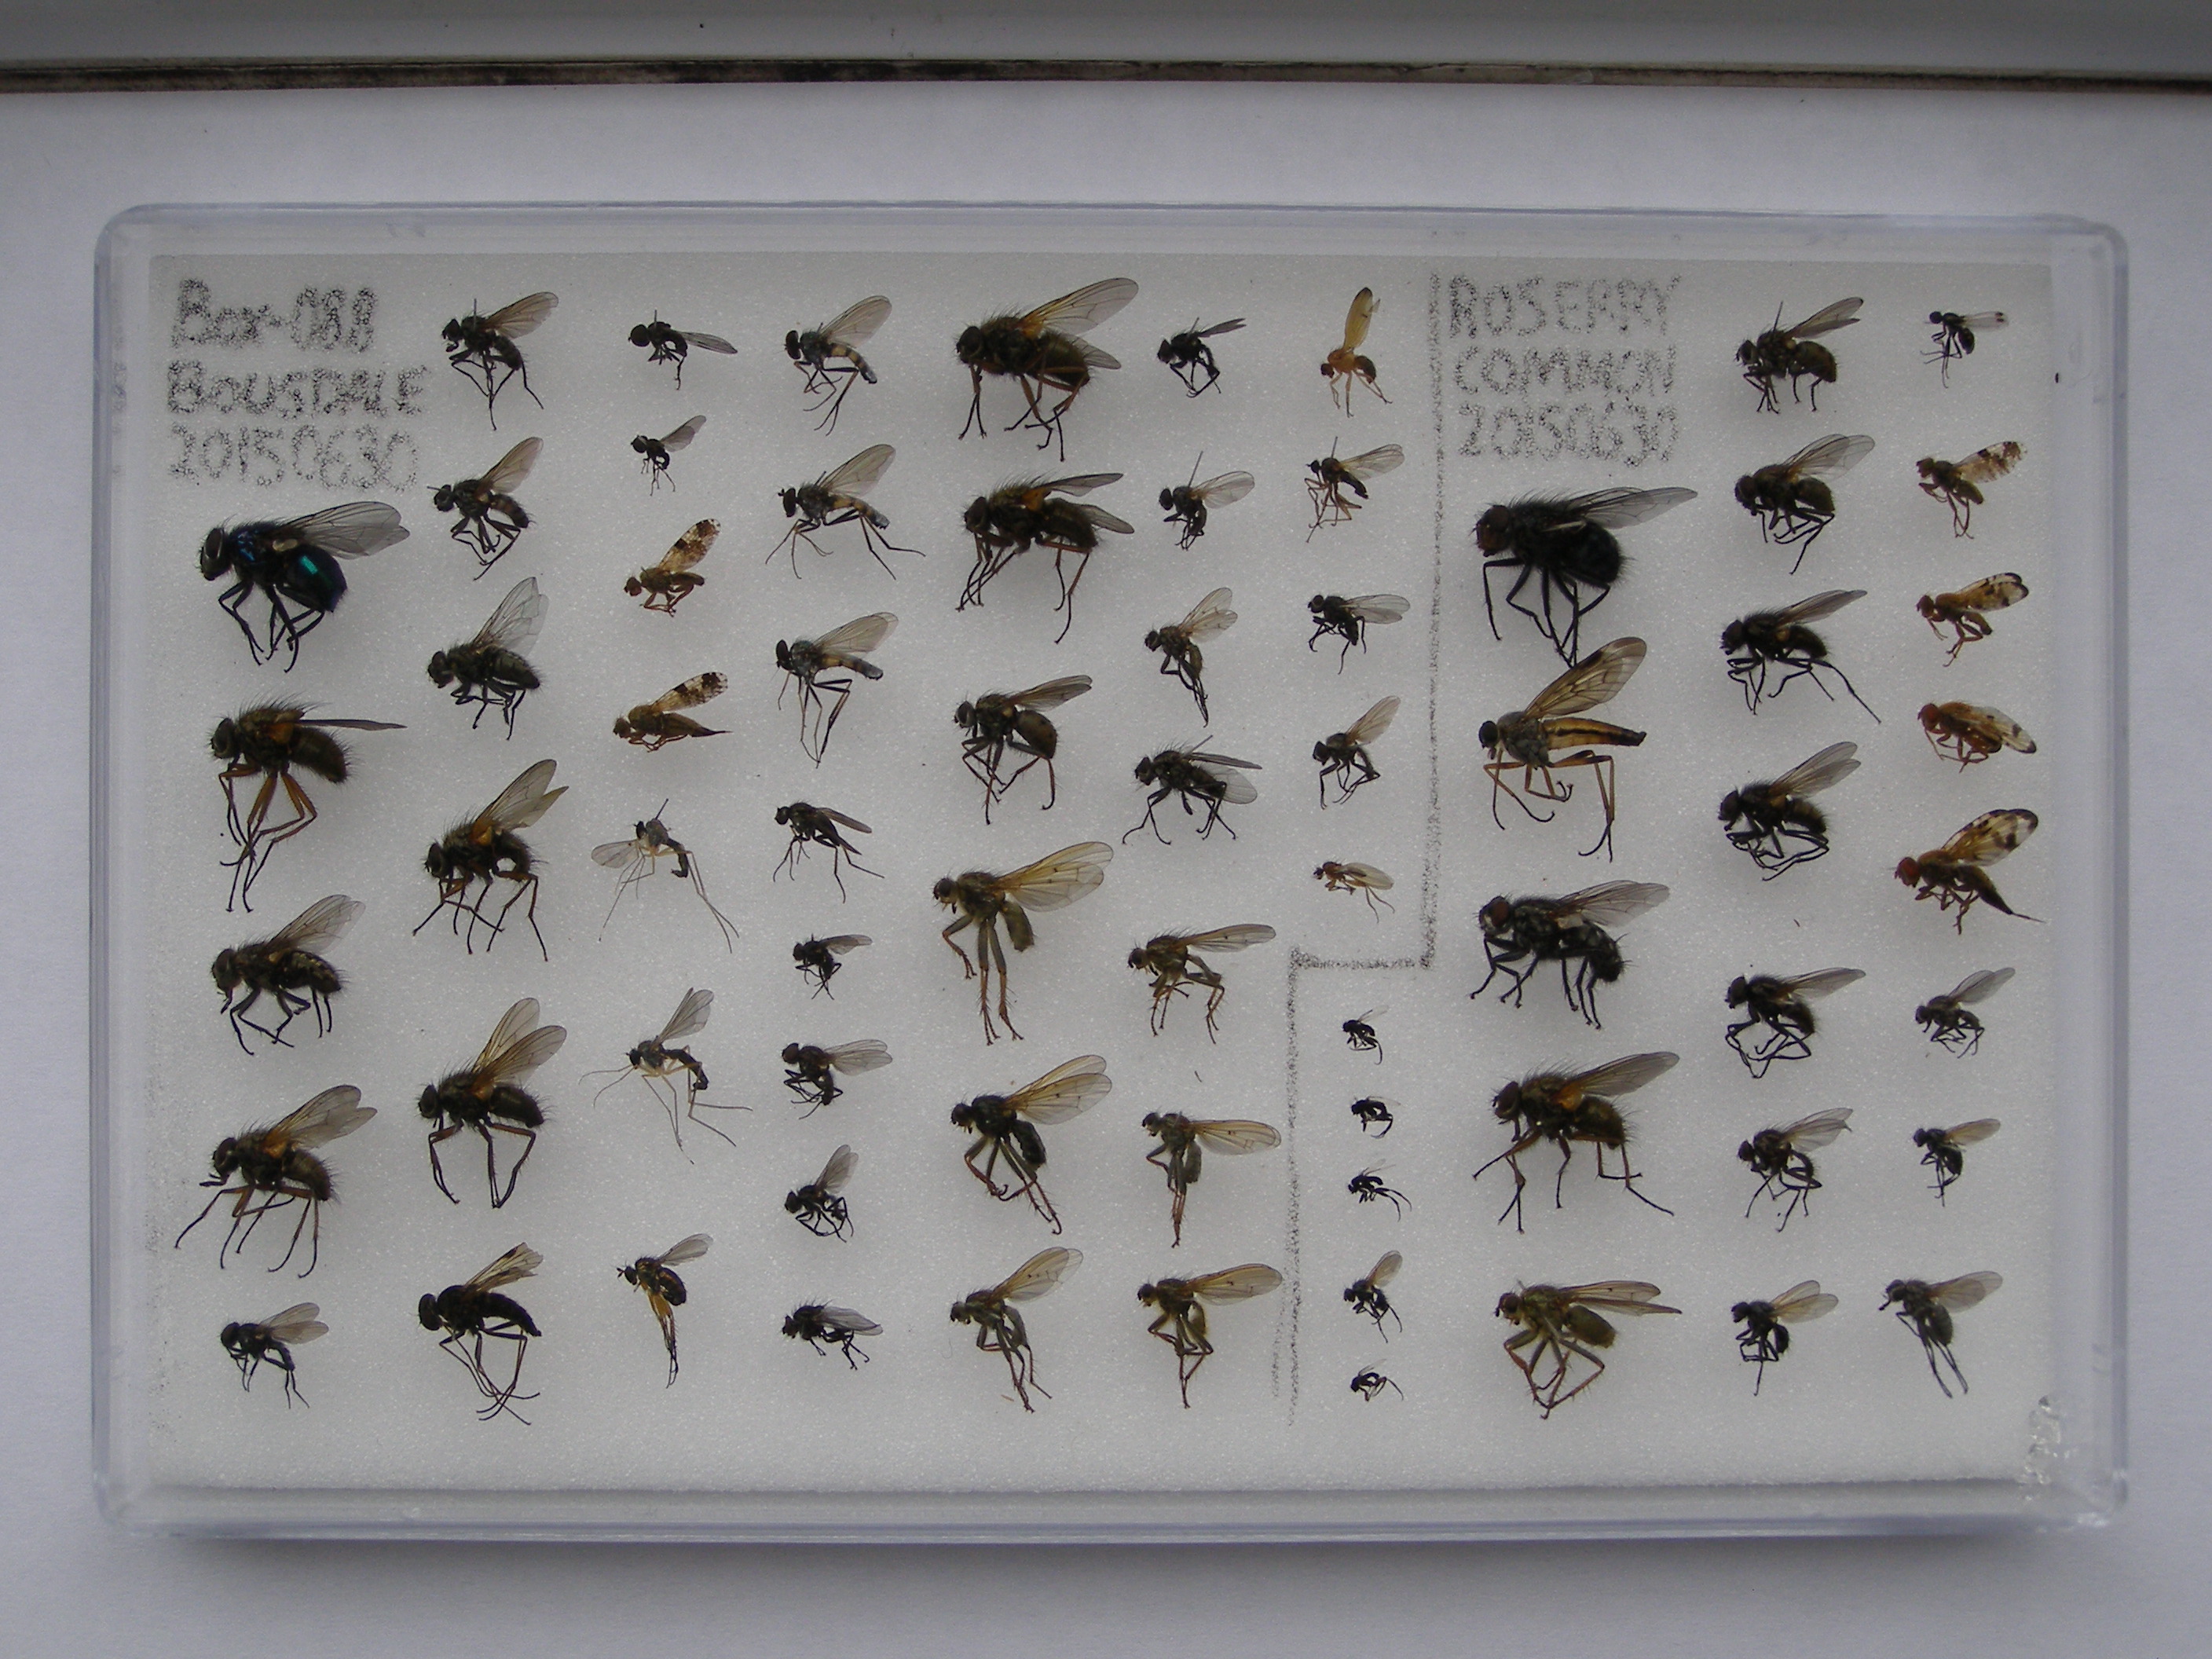 Box-088
BOUSDALE
20150630
ROSEBRRY
COMMON
20150630